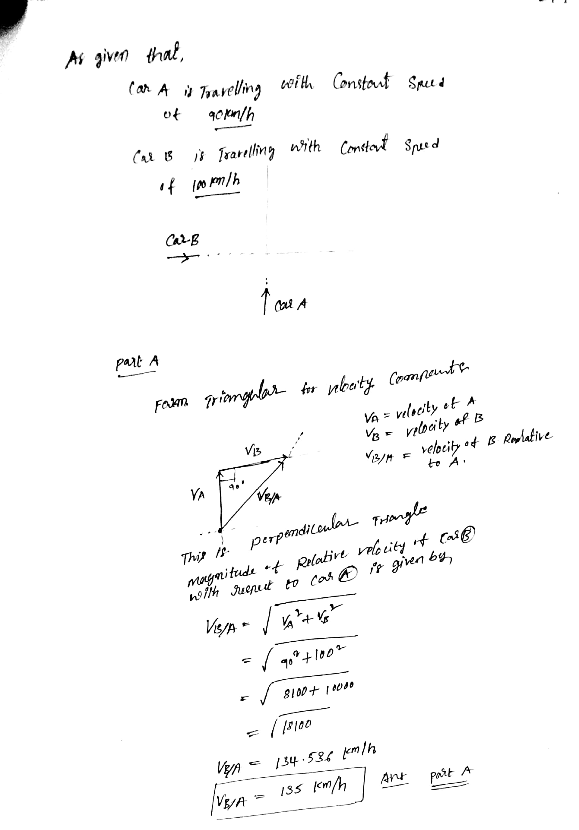 As given that,
Car A is Travelling with Constant Speed
of 90km/h
Car B is Travelling with Constant Speed
of 100 km/h
Car-B
Car A
Part A
Form Triangular for velocity Components
VA = velocity of A
VB = velocity of B
VB/A = velocity of B Realative
to A.
VB
90°
VA
VB/A
This is perpendicular Triangle
magnitude of Relative velocity of Car B
with respect to car A is given by,
VB/A = √VA² + VB²
= √90² + 100²
= √8100 + 10000
= √18100
VB/A = 134.536 km/h
VB/A = 135 km/h Ans Part A